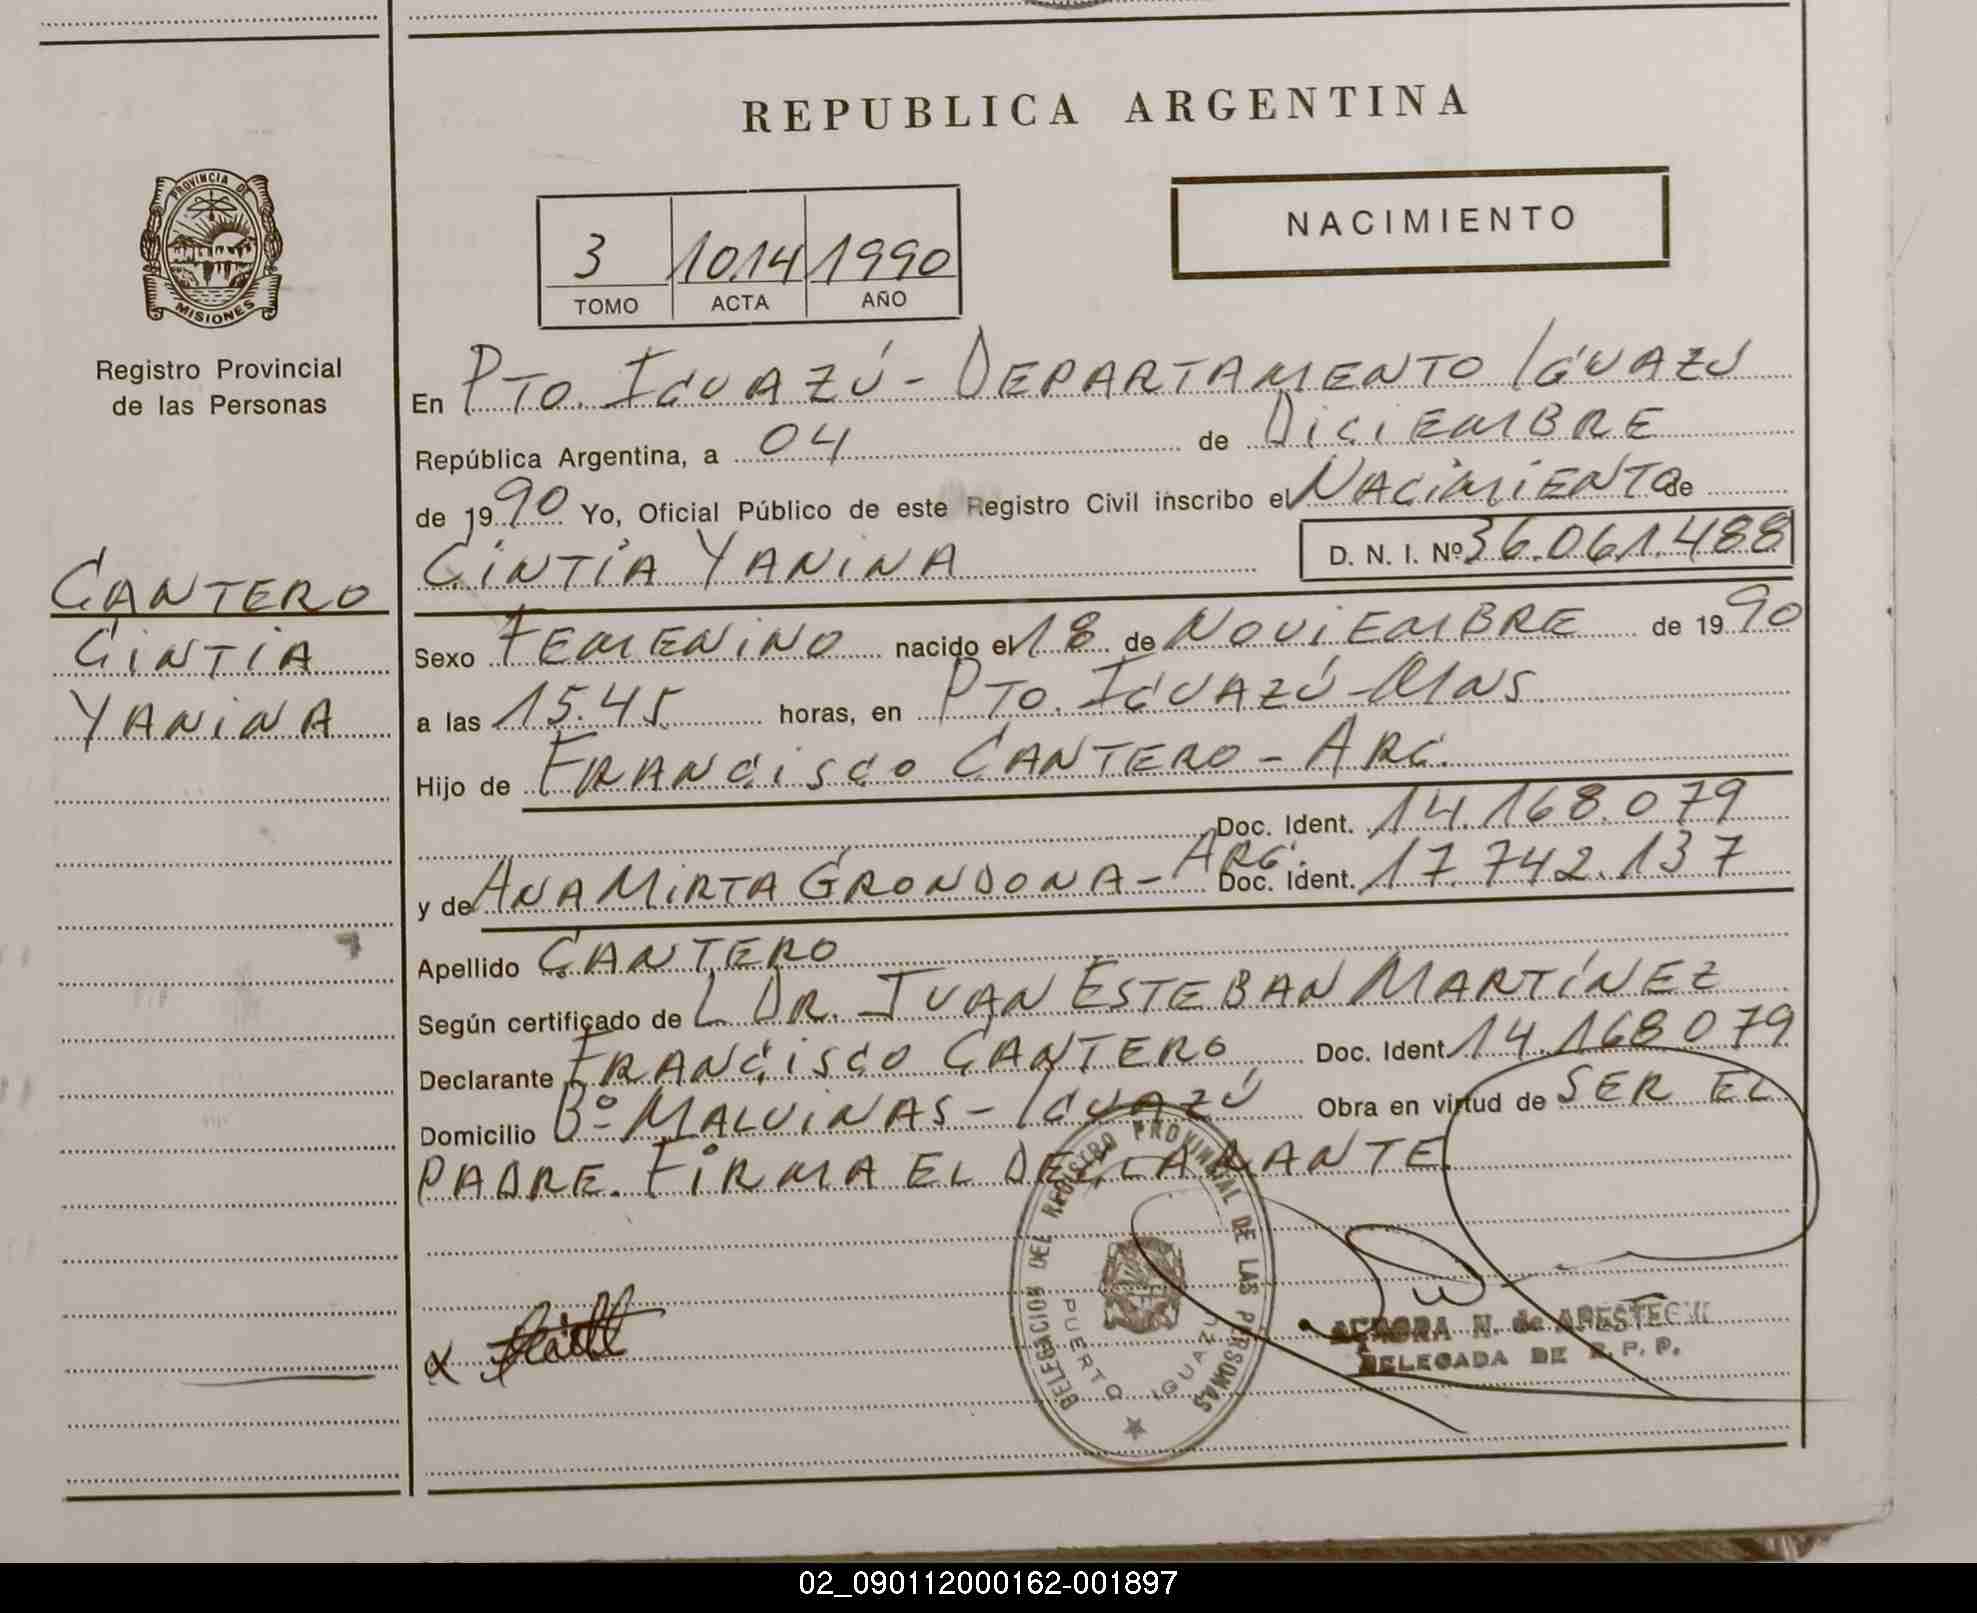 REPUBLICA ARGENTINA
PROVINCIA DE
MISIONES
Registro Provincial
de las Personas
CANTERO
CINTIA
YANINA
NACIMIENTO
3 1014 1990
TOMO ACTA AÑO
En PTO. IGUAZÚ - DEPARTAMENTO IGUAZÚ
República Argentina, a 04 de DICIEMBRE
de 1990 Yo, Oficial Público de este Registro Civil inscribo el NACIMIENTO de
CINTIA YANINA D. N. I. Nº 36.061.488
Sexo FEMENINO nacido el 18 de NOVIEMBRE de 1990
a las 15.45 horas, en PTO. IGUAZÚ - MNS.
Hijo de FRANCISCO CANTERO - ARG.
Doc. Ident. 14.168.079
y de ANA MIRTA GRONDONA - ARG. Doc. Ident. 17.742.137
Apellido CANTERO
Según certificado de L DR. JUAN ESTEBAN MARTÍNEZ
Declarante FRANCISCO CANTERO Doc. Ident 14.168.079
Domicilio Bº MALVINAS - IGUAZÚ Obra en virtud de SER EL
PADRE. FIRMA EL DECLARANTE
DELEGACION DEL REGISTRO PROVINCIAL DE LAS PERSONAS
PUERTO IGUAZU
AURORA N. de ARESTEGUI
DELEGADA DE R. P. P.
02_090112000162-001897